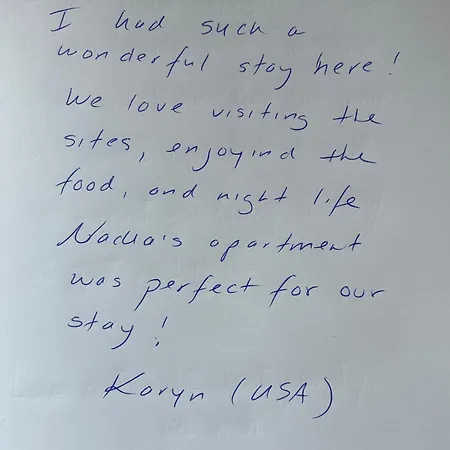 I had such a
wonderful stay here!
We love visiting the
sites, enjoyind the
food, and night life
Nadia's apartment
was perfect for our
stay!
Karyn (USA)